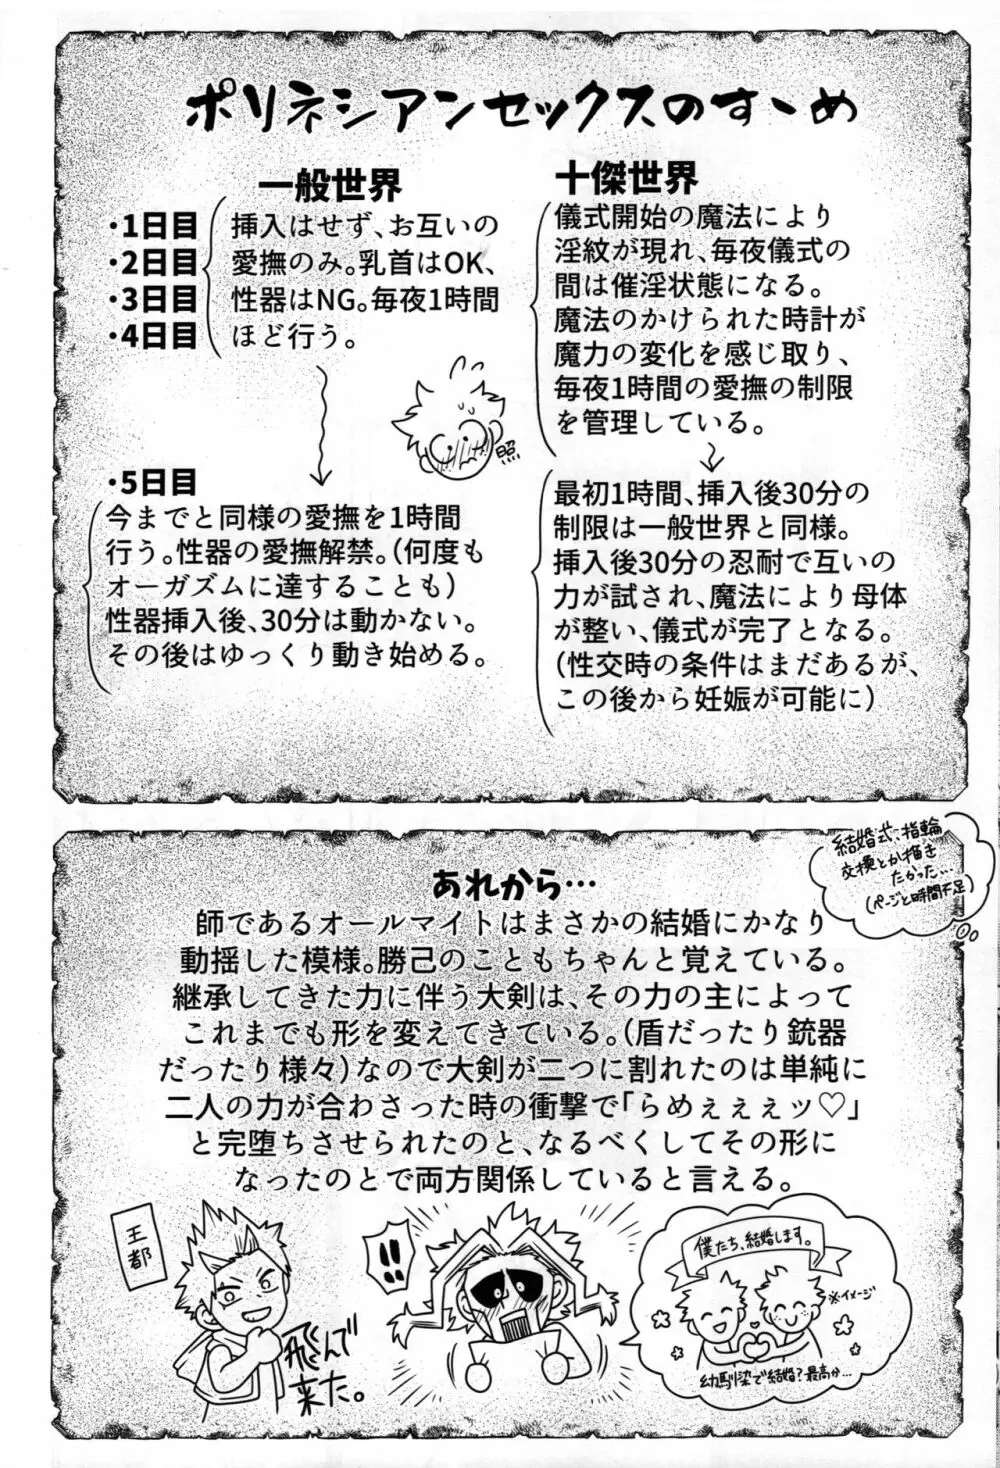 ポリネシアンセックスのすゝめ
一般世界
・1日目
・2日目
・3日目
・4日目
挿入はせず、お互いの
愛撫のみ。乳首はOK、
性器はNG。毎夜1時間
ほど行う。
照
・5日目
今までと同様の愛撫を1時間
行う。性器の愛撫解禁。(何度も
オーガズムに達することも)
性器挿入後、30分は動かない。
その後はゆっくり動き始める。
十傑世界
儀式開始の魔法により
淫紋が現れ、毎夜儀式の
間は催淫状態になる。
魔法のかけられた時計が
魔力の変化を感じ取り、
毎夜1時間の愛撫の制限
を管理している。
最初1時間、挿入後30分の
制限は一般世界と同様。
挿入後30分の忍耐で互いの
力が試され、魔法により母体
が整い、儀式が完了となる。
(性交時の条件はまだあるが、
この後から妊娠が可能に)
結婚式、指輪
交換とか描き
たかった…
(ページと時間不足)
あれから…
師であるオールマイトはまさかの結婚にかなり
動揺した模様。勝己のこともちゃんと覚えている。
継承してきた力に伴う大剣は、その力の主によって
これまでも形を変えてきている。(盾だったり銃器
だったり様々)なので大剣が二つに割れたのは単純に
二人の力が合わさった時の衝撃で「らめぇぇぇッ♡」
と完堕ちさせられたのと、なるべくしてその形に
なったのとで両方関係していると言える。
王都
飛んで
来た。
!!
僕たち、結婚します。
※イメージ
幼馴染で結婚?最高か…